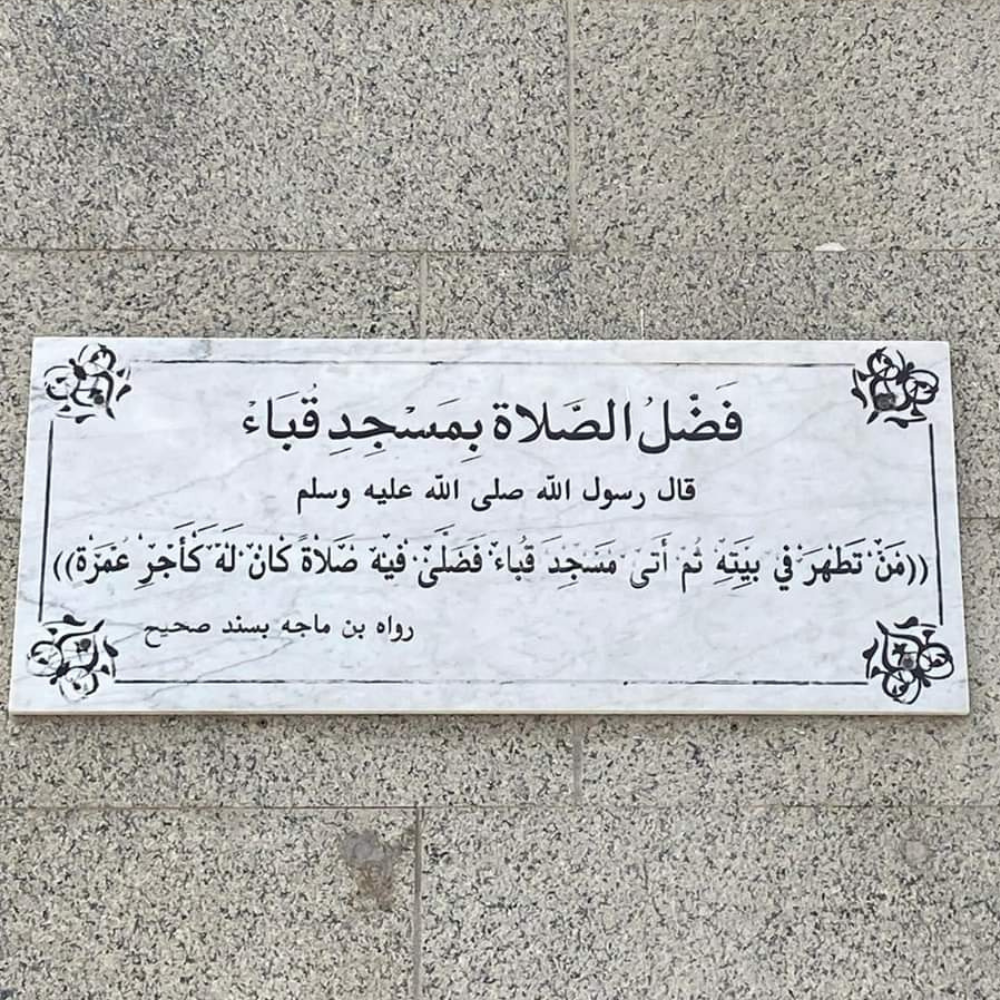 فَضْلُ الصَّلاة بِمَسْجِدِ قُبَاءْ
قال رسول الله صلى الله عليه وسلم
((مَنْ تَطَهَرَ في بَيَتِهِ ثُمَ أَتَى مَسْجِدَ قُبَاءَ فَصَلَّىَ فَيْهِ صَلاَةً كَانَ لَهَ كَأَجرِ عُمَرْة))
رواه بن ماجه بسند صحيح